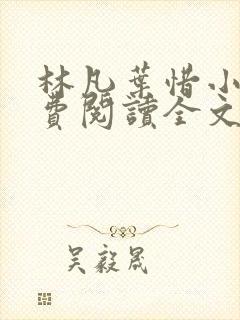 林凡葉惜小
費閱讀全文
吴毅晟